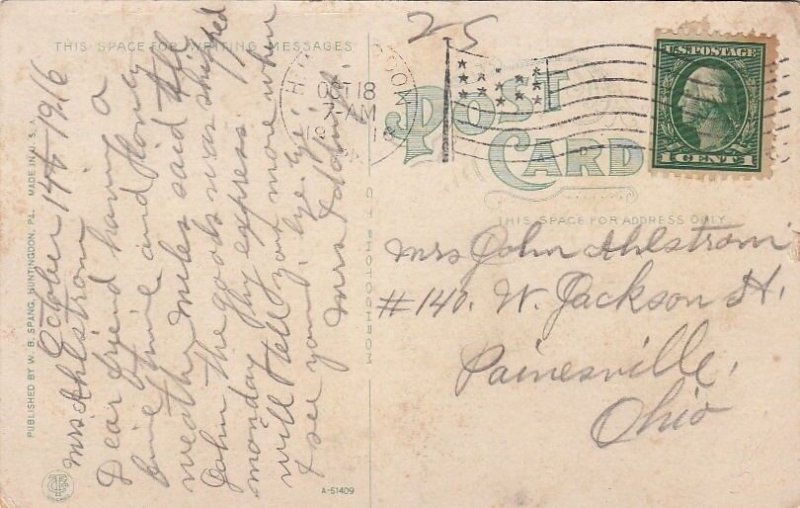 THIS SPACE FOR WRITING MESSAGES
25
OCT 18
7-AM
U.S. POSTAGE
1 CENT 1
POST
CARD
THIS SPACE FOR ADDRESS ONLY
Mrs John Ahlstrom
#140. W. Jackson St.
Painesville,
Ohio
PUBLISHED BY W. B. SPANG, HUNTINGDON, PA. MADE IN U.S.A.
October 14th 1916
Mrs Ahlstrom
Dear friend having a
fine time and
weather miles said tell
John the goods was shipped
monday by express.
will tell you more when
I see you. bye. bye.
Mrs
C.T. PHOTOCHROM
A-51409